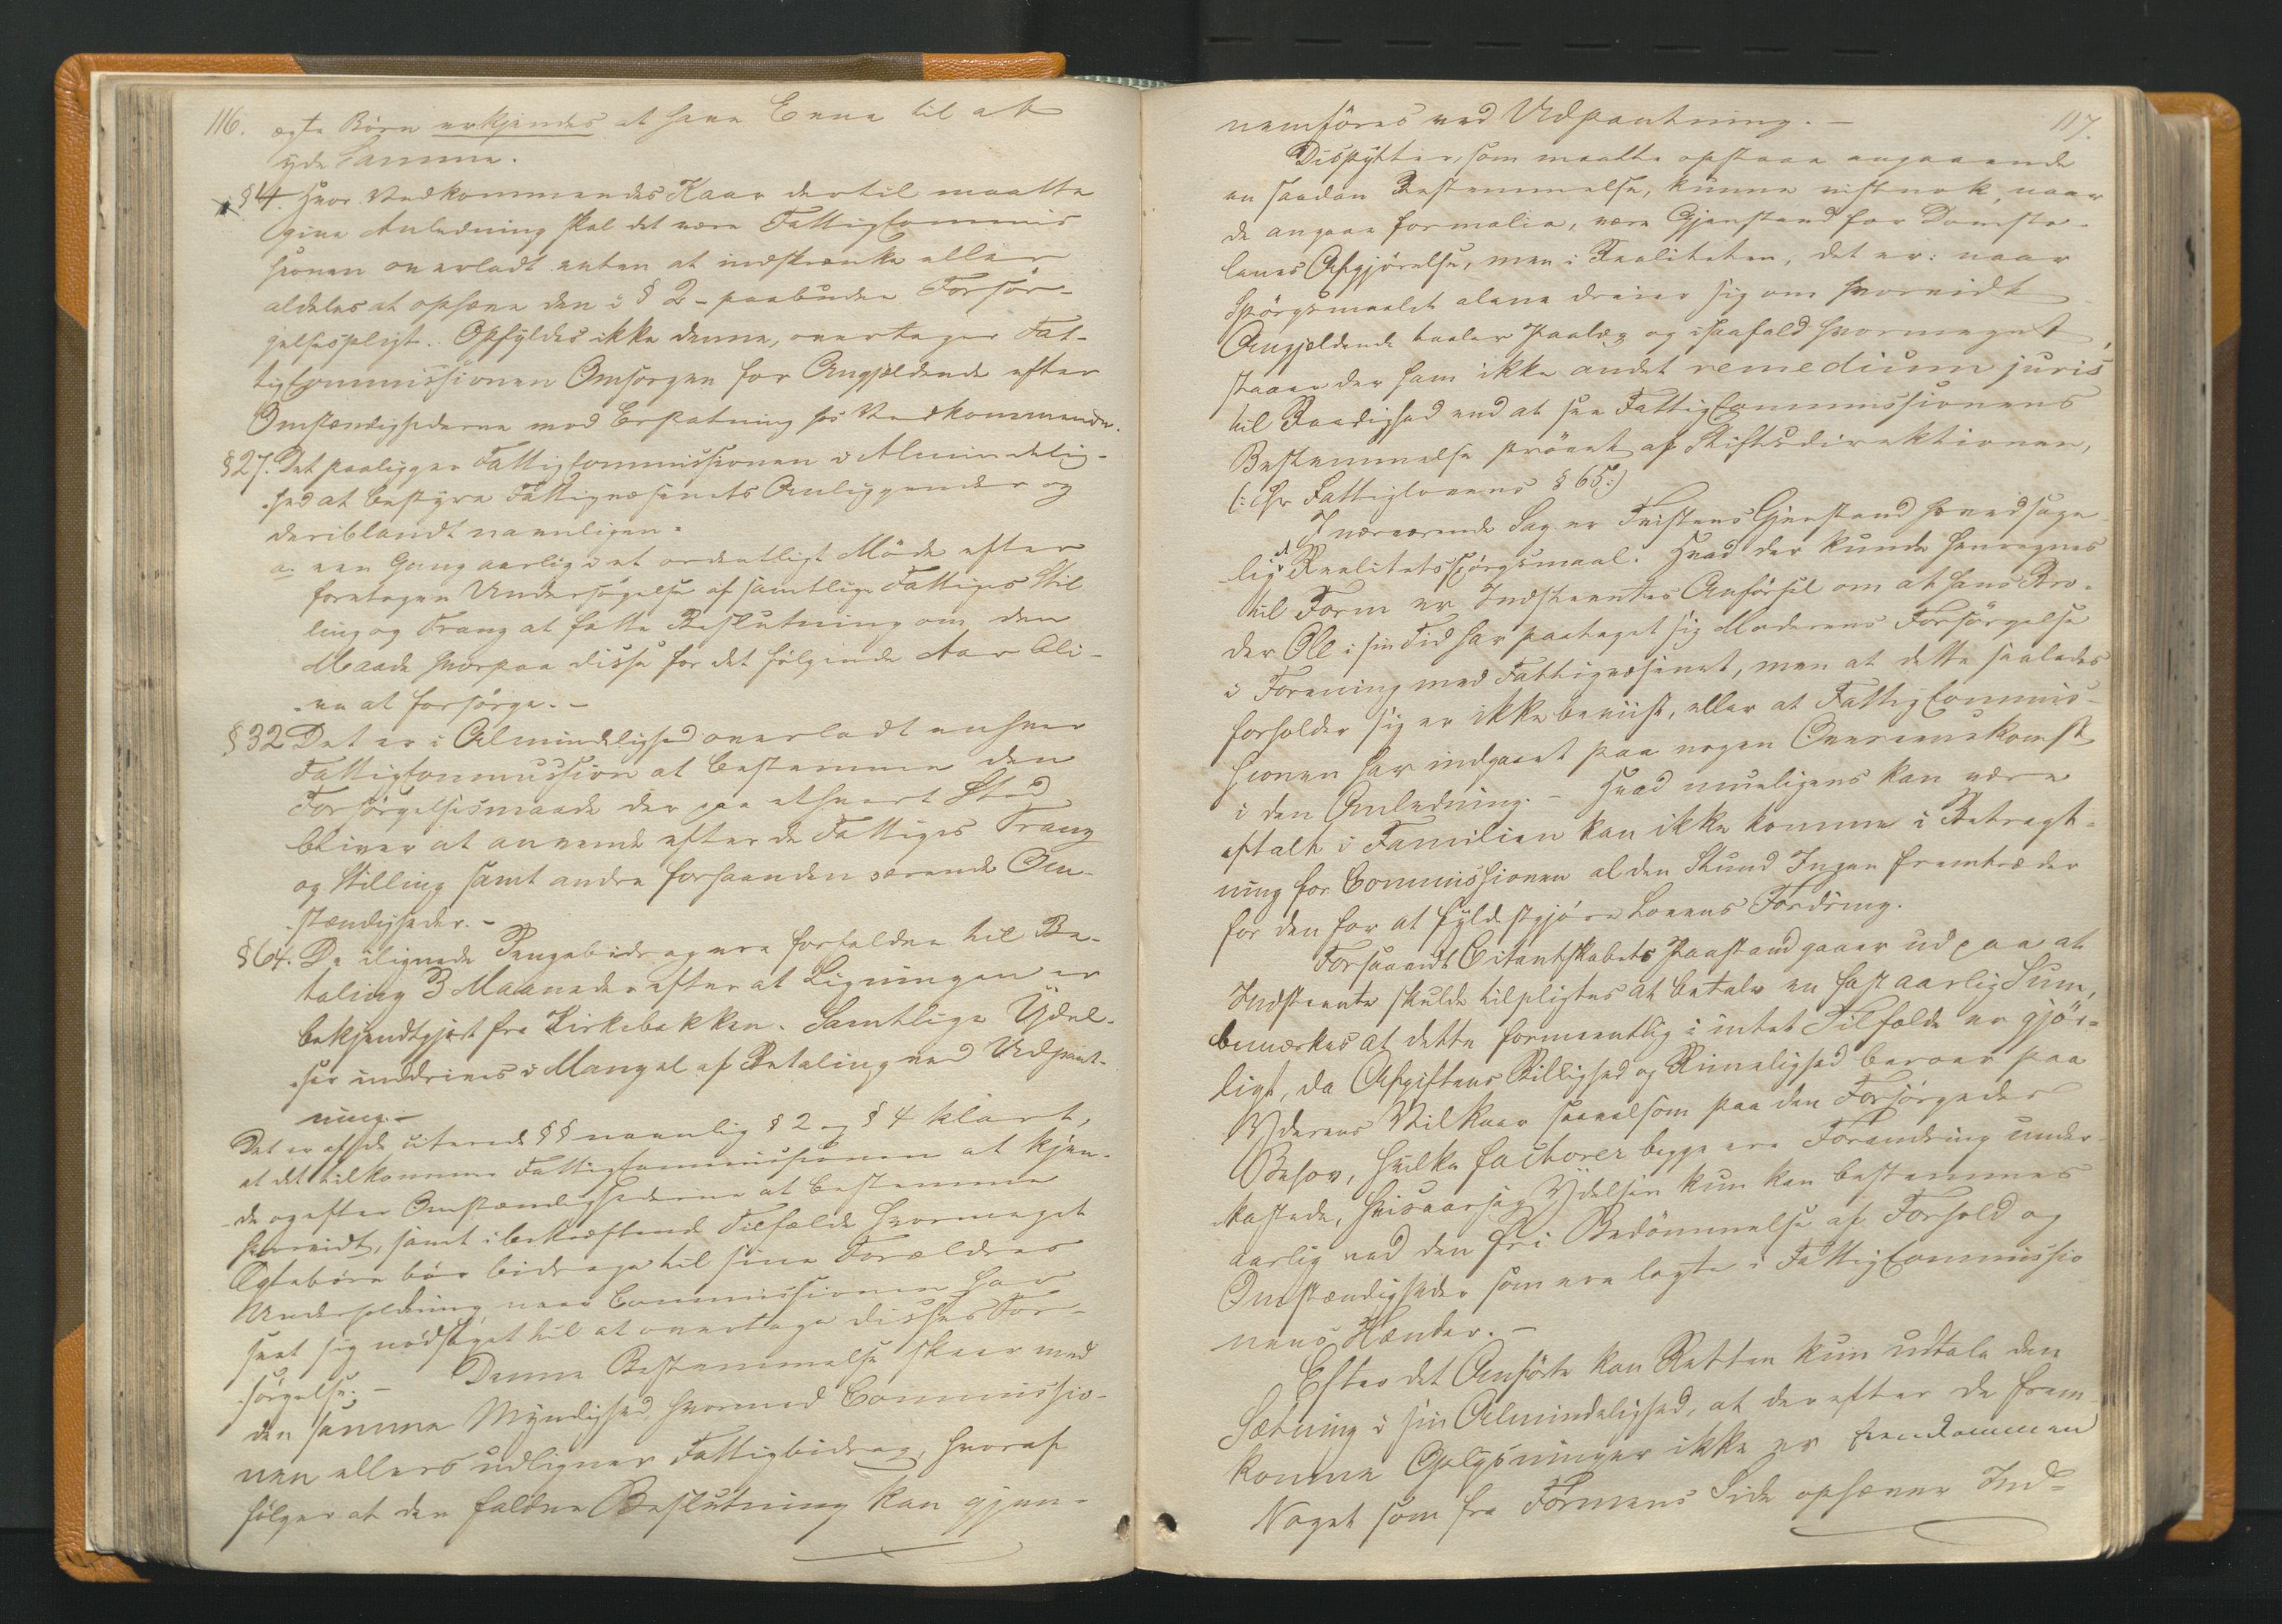 116.
ægte Børn erkjendes at have Evne til at
yde Samme.
§ 4. Hvor Vedkommendes Kaar dertil maatte
give Anledning skal det være Fattigcommis
sionen overladt enten at indskrænke eller
aldeles at ophæve den i § 2 - paabudne Forsør-
gelsespligt. Opfyldes ikke denne, overtager Fat-
tigcommissionen Omsorgen for Angjældende efter
Omstændighederne mod Erstatning hos Vedkommende.
§ 27. Det paaligger Fattigcommissionen i Almindelig-
hed at bestyre Fattigvæsenets Anliggender og
deriblandt navnligen:
a. een Gang aarlig i et ordentligt Møde efter
foretagen Undersøgelse af samtlige Fattiges Stil
ling og Trang at fatte Beslutning om den
Maade hvorpaa disse for det følgende Aar bli-
ve at forsørge. -
§ 32 Det er i Almindelighed overladt enhver
Fattigcommission at bestemme den
Forsørgelsesmaade der paa ethvert Sted
bliver at anvende efter de Fattiges Trang
og Stilling samt andre forhaanden værende Om-
stændigheder. -
§ 64. De ilignede Pengebidrag ere forfaldne til Be-
taling 3 Maaneder efter at Ligningen er
bekjendtgjort fra Kirkebakken. Samtlige Ydel-
ser inddrives i Mangel af Betaling ved Udpant-
ning. -
Det er af de citerede §§ navnlig § 2 og § 4 klart,
at det tilkommer Fattigcommissionen at kjen-
de og efter Omstændighederne at bestemme
hvorvidt, samt i bekræftende Tilfælde hvormeget
Ægtebørn bør bidrage til sine Forældres
Underholdning naar Commissionen har
seet sig nødsaget til at overtage disses For-
sørgelse. - Denne Bestemmelse skeer med
den samme Myndighed hvormed Commissio-
nen ellers udligner Fattigbidrag, hvoraf
følger at den faldne Beslutning kan gjen-
117.
nemføres ved Udpantning. -
Disputter, som maatte opstaae angaaende
en saadan Bestemmelse, kunne vistnok, naar
de angaae formalia, være Gjenstand for Domsto-
lenes Afgjørelse, men i Realiteten, det er: naar
Spørgsmaalet alene dreier sig om hvorvidt
Angjældende taaler Paalæg og isaafald hvormeget,
staaer der ham ikke andet remedium juris
til Raadighed end at see Fattigcommissionens
Bestemmelse prøvet af Stiftsdirektionen,
(: cfr Fattiglovens § 65:)
I nærværende Sag er Tvistens Gjenstand hovedsage
ligst Realitetsspørgsmaal. Hvad der kunde henregnes
til Form er Indstevntes Anførsel om at hans Bro-
der Ole i sin Tid har paataget sig Moderens Forsørgelse
i Forening med Fattigvæsenet, men at dette saaledes
forholder sig er ikke beviist, eller at Fattigcommis-
sionen har indgaaet paa nogen Overeenskomst
i den Anledning. - Hvad mueligens kan være
aftalt i Familien kan ikke komme i Betragt-
ning for Commissionen al den Stund Ingen fremtræder
for den for at fyldestgjøre Lovens Fordring.
Forsaavidt Citantskabets Paastand gaaer ud paa at
Indstevnte skulde tilpligtes at betale en fast aarlig Sum,
bemærkes at dette formeentlig i intet Tilfælde er gjør-
ligt, da Afgiftens Billighed og Rimelighed beroer paa
Yderens Vilkaar saavelsom paa den Forsørgedes
Behov, hvilke factorer begge ere Forandring under
kastede, hvisaarsag Ydelsen kun kan bestemmes
aarlig ved den fri Bedømmelse af Forhold og
Omstændigheder som ere lagte i Fattigcommissio
nens Hænder. -
Efter det Anførte kan Retten kun udtale den
Sætning i sin Almindelighed, at der efter de frem
komne Oplysninger ikke er fremkommen
Noget som fra Formens Side ophæver Ind-